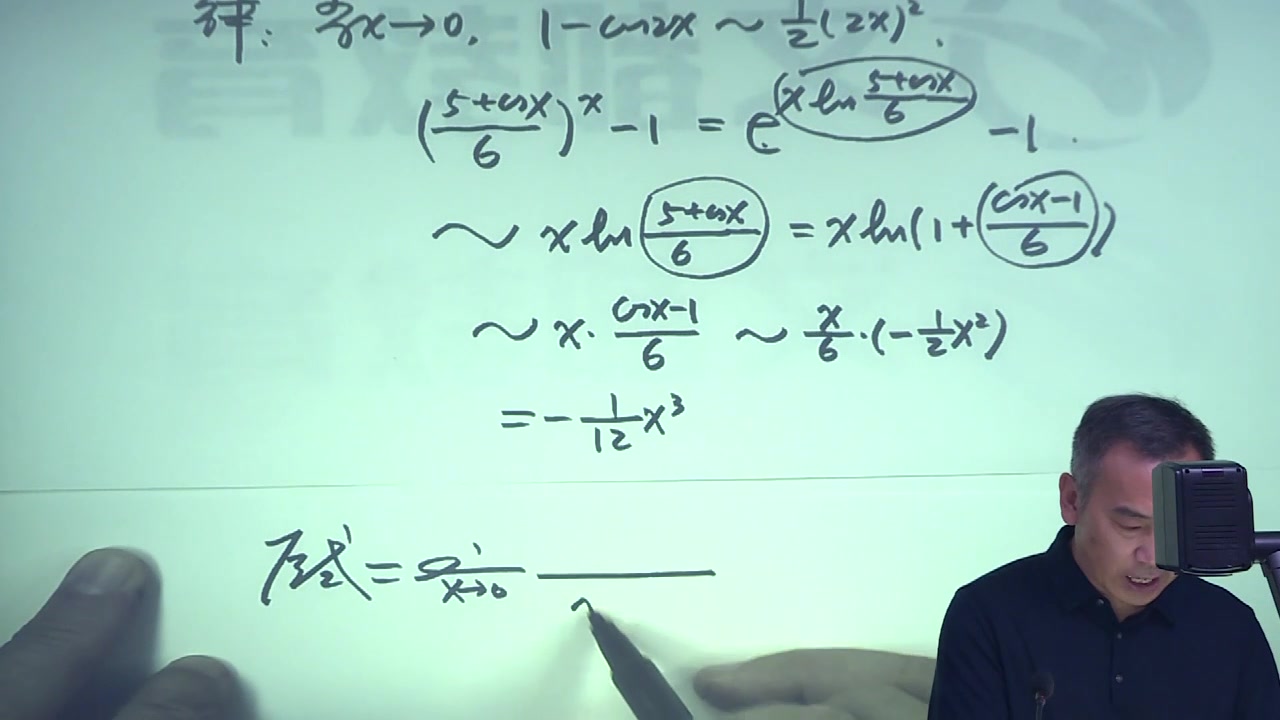 解: 当x→0, 1-cos2x ~ \frac{1}{2}(2x)^2.
(\frac{5+cosx}{6})^x - 1 = e^{x ln\frac{5+cosx}{6}} - 1.
~ x ln\frac{5+cosx}{6} = x ln(1+\frac{cosx-1}{6})
~ x·\frac{cosx-1}{6} ~ \frac{x}{6}·(-\frac{1}{2}x^2)
= -\frac{1}{12}x^3
原式 = x→0